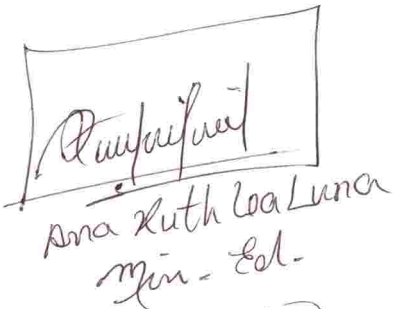 Ana Ruth Loa Luna
Min. Ed.